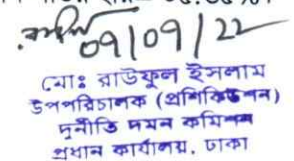 09/09/22
মোঃ রাউফুল ইসলাম
উপপরিচালক (প্রশিকিউশন)
দুর্নীতি দমন কমিশন
প্রধান কার্যালয়, ঢাকা